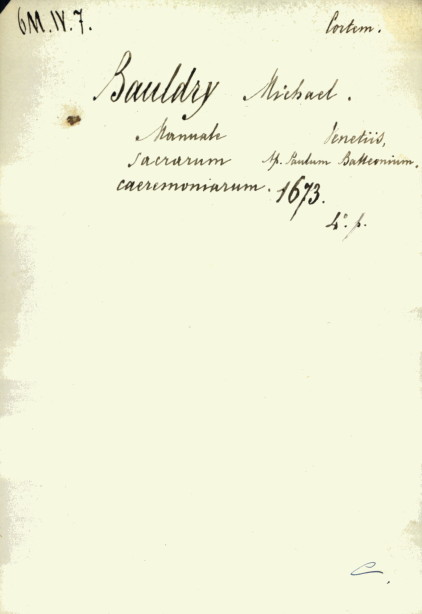 6M.IV.7. Cortem.
Bauldry Michael.
Manuale Venetiis,
sacrarum Ap. Paulum Balleonium.
caeremoniarum. 1673.
4°. p.
C.